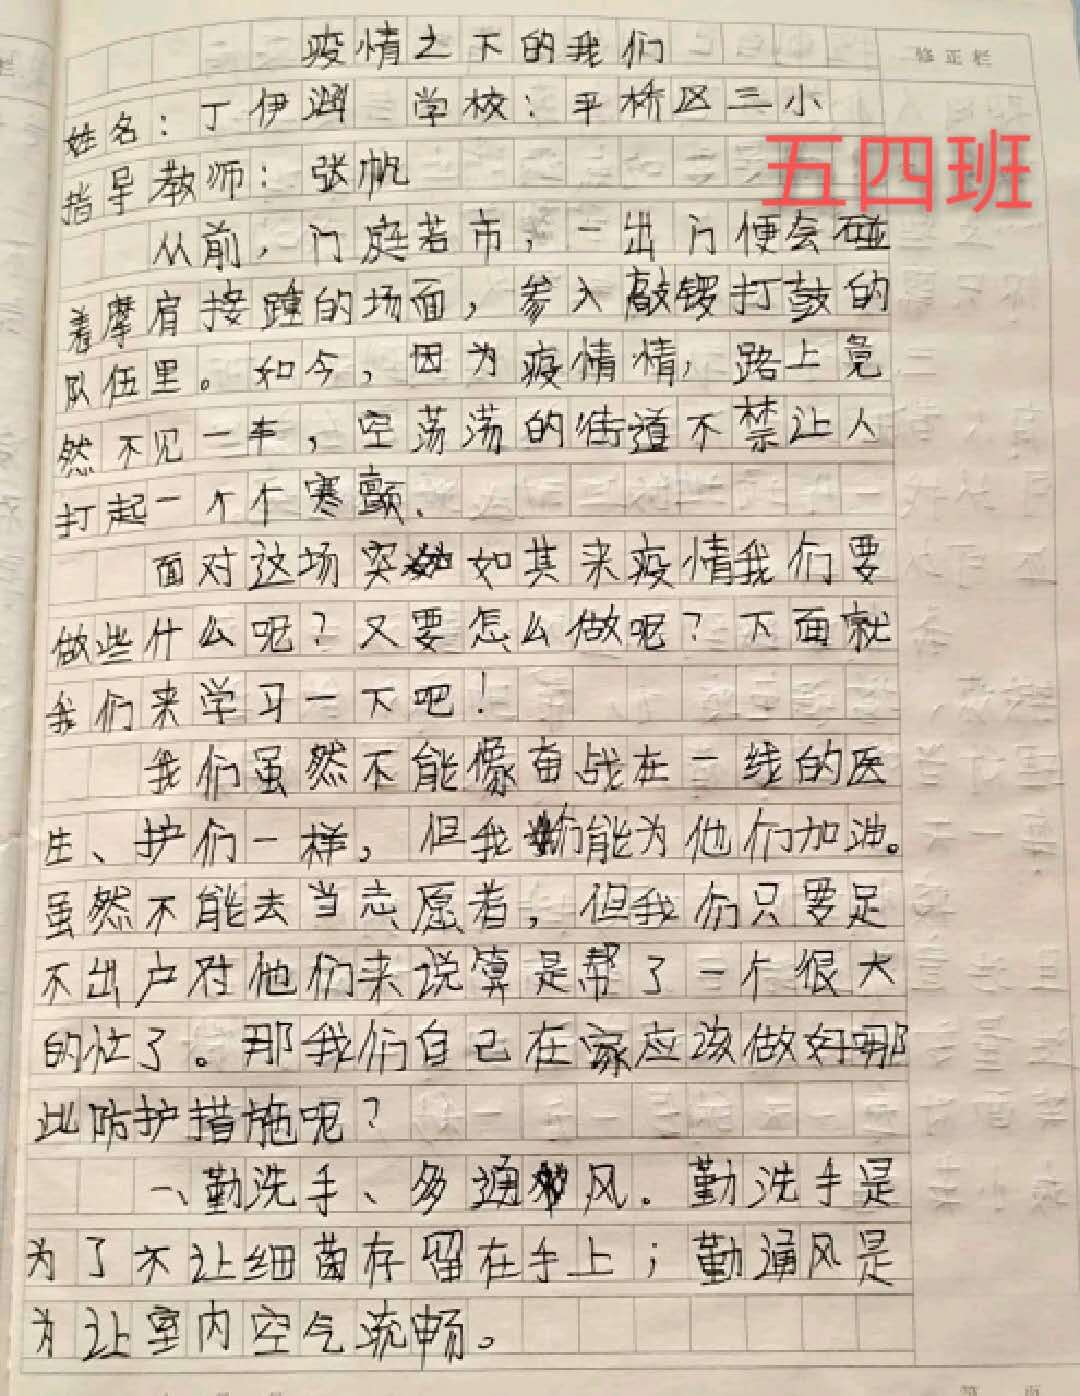 疫情之下的我们
修正栏
姓名：丁伊涵 学校：平桥区三小
五四班
指导教师：张帆
从前，门庭若市，一出门便会碰
着摩肩接踵的场面，参入敲锣打鼓的
队伍里。如今，因为疫情情，路上竟
然不见一车，空荡荡的街道不禁让人
打起一个个寒颤、
面对这场突如其来疫情我们要
做些什么呢？又要怎么做呢？下面就
我们来学习一下吧！
我们虽然不能像奋战在一线的医
生、护们一样，但我们能为他们加油。
虽然不能去当志愿者，但我们只要足
不出户对他们来说算是帮了一个很大
的忙了。那我们自己在家应该做好哪
此防护措施呢？
一、勤洗手、多通风。勤洗手是
为了不让细菌存留在手上；勤通风是
为让室内空气流畅。